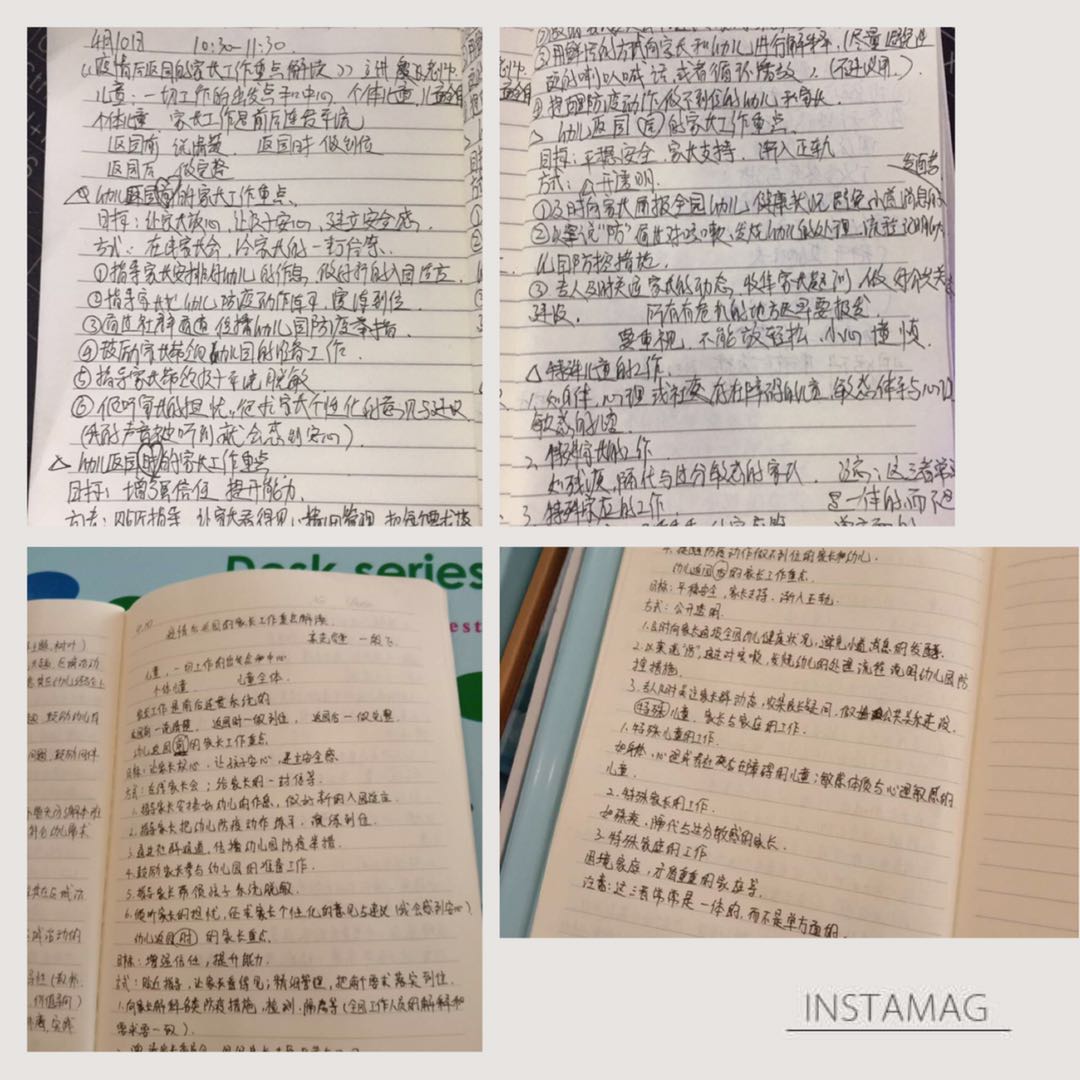 4月10日 10:30-11:30
《疫情后返园的家长工作重点解读》 主讲
儿童:一切工作的出发点和中心 个体儿童
个体儿童 家长工作是前后连贯系统
返园前 说清楚 返园时 做到位
返园后 做完整
△ 幼儿返园前的家长工作重点
目标:让家长放心,让孩子安心,建立安全感
方式:在线家长会,给家长的一封信等
①指导家长安排好幼儿的作息,做好新的入园适应
②指导家长把幼儿防疫动作练手,演练到位
③通过社群通道传播幼儿园防疫举措
④鼓励家长参与幼儿园的准备工作
⑤指导家长带领孩子系统脱敏
⑥倾听家长的担忧,征求家长个性化的意见与建议
(我的声音被听到就会感到安心)
△ 幼儿返园时的家长工作重点
目标:增强信任 提升能力
方式:贴近指导,让家长看得见,精细管理,把每个要求落
③用鲜活的方式向家长和幼儿进行解释(尽量避免
喇叭喊话或者循环播放)(不建议用)
④提醒防疫动作做不到位的幼儿和家长
△ 幼儿返园后的家长工作重点
目标:平稳安全,家长支持,渐入正轨
方式:公开透明 发酵
①及时向家长通报全园幼儿健康状况,避免小道消息的
②以案说"防"通过对咳嗽、发烧幼儿的处理流程说明幼
儿园防控措施
③专人及时关注家长的动态,收集家长疑问,做好公关
建设 所有有危机的地方都要报告
要重视,不能放轻松,小心谨慎
△ 特殊儿童的工作
1. 如身体,心理或社交存在障碍的儿童,敏感体质与心理
敏感的儿童
2. 特殊家长的工作
如残疾,隔代与过分敏感的家长 注意:这三者常常
3. 特殊家庭的工作 是一体的而不是
4.10 疫情后返园的家长工作重点解读
儿童,一切工作的出发点和中心
个体儿童 儿童全体
家长工作是前后连贯系统的
返园前-说清楚,返园时-做到位,返园后-做完整
幼儿返园前的家长工作重点
目标:让家长放心,让孩子安心,建立安全感
方式:在线家长会;给家长的一封信等
1.指导家长安排好幼儿作息,做好新的入园适应
2.指导家长把幼儿防疫动作练手,演练到位
3.通过社群通道,传播幼儿园防疫举措
4.鼓励家长参与幼儿园的准备工作
5.指导家长带领孩子系统脱敏
6.倾听家长的担忧,征求家长个性化的意见与建议(我会感到安心)
幼儿返园时的家长重点
目标:增强信任,提升能力
方式:贴近指导,让家长看得见;精细管理,把每个要求落实到位
1.向家长解释各类防疫措施,检测,隔离等(全园工作人员的解释和
要求要一致)
Desk series
4.提醒防疫动作做不到位的家长和幼儿
幼儿返园后的家长工作重点
目标:平稳安全,家长支持,渐入正轨
方式:公开透明
1.及时向家长通报全园幼儿健康状况,避免小道消息的发酵
2.以案说"防",通过对咳嗽,发烧幼儿的处理流程说明幼儿园防
控措施
3.专人及时关注家长群动态,收集家长疑问,做好公共关系建设
特殊儿童、家长与家庭的工作
1.特殊儿童的工作
如身体,心理或者社交存在障碍的儿童;敏感体质与心理敏感的
儿童
2.特殊家长的工作
如残疾,隔代与过分敏感的家长
3.特殊家庭的工作
困境家庭,矛盾重重的家庭等
注意:这三者常常是一体的,而不是单方面的
INSTAMAG